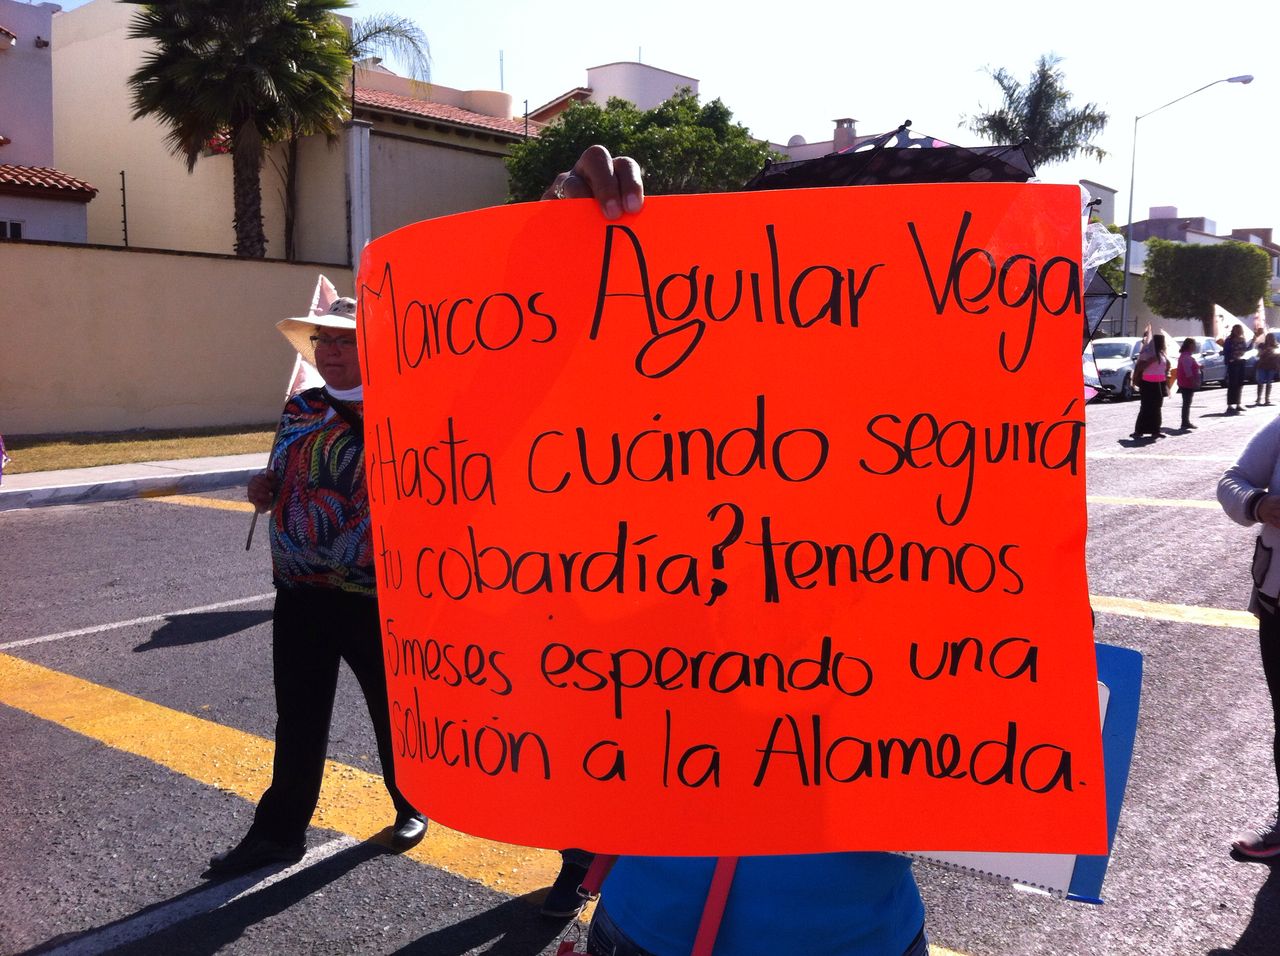 Marcos Aguilar Vega
¿Hasta cuándo seguirá
tu cobardía? tenemos
5 meses esperando una
solución a la Alameda.